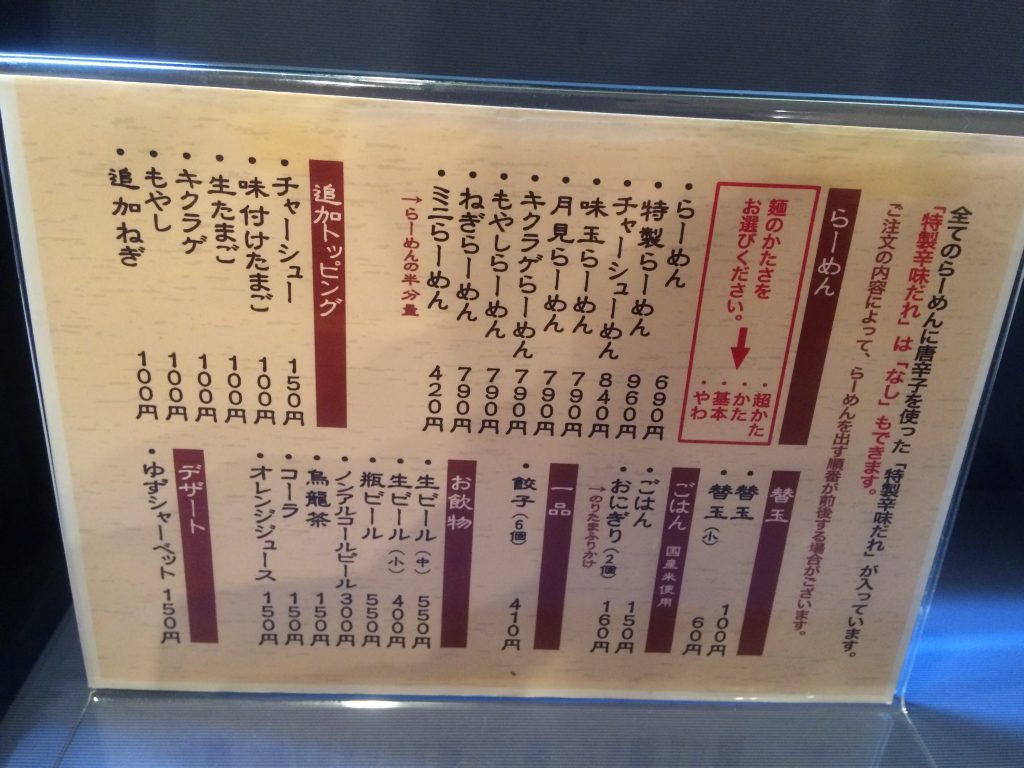 全てのらーめんに唐辛子を使った「特製辛味だれ」が入っています。
「特製辛味だれ」は「なし」もできます。
ご注文の内容によって、らーめんを出す順番が前後する場合がございます。
らーめん
麺のかたさを
お選びください。→
・超かた
・かた
・基本
・やわ
・らーめん 690円
・特製らーめん 960円
・チャーシューめん 840円
・味玉らーめん 790円
・月見らーめん 790円
・キクラゲらーめん 790円
・もやしらーめん 790円
・ねぎらーめん 790円
・ミニらーめん 420円
→らーめんの半分量
追加トッピング
・チャーシュー 150円
・味付けたまご 100円
・生たまご 100円
・キクラゲ 100円
・もやし 100円
・追加ねぎ 100円
替玉
・替玉 100円
・替玉(小) 60円
ごはん 国産米使用
・ごはん 150円
・おにぎり(2個) 160円
→のりたまふりかけ
一品
・餃子(6個) 410円
お飲物
・生ビール(中) 550円
・生ビール(小) 400円
・瓶ビール 550円
・ノンアルコールビール 300円
・烏龍茶 150円
・コーラ 150円
・オレンジジュース 150円
デザート
・ゆずシャーベット 150円